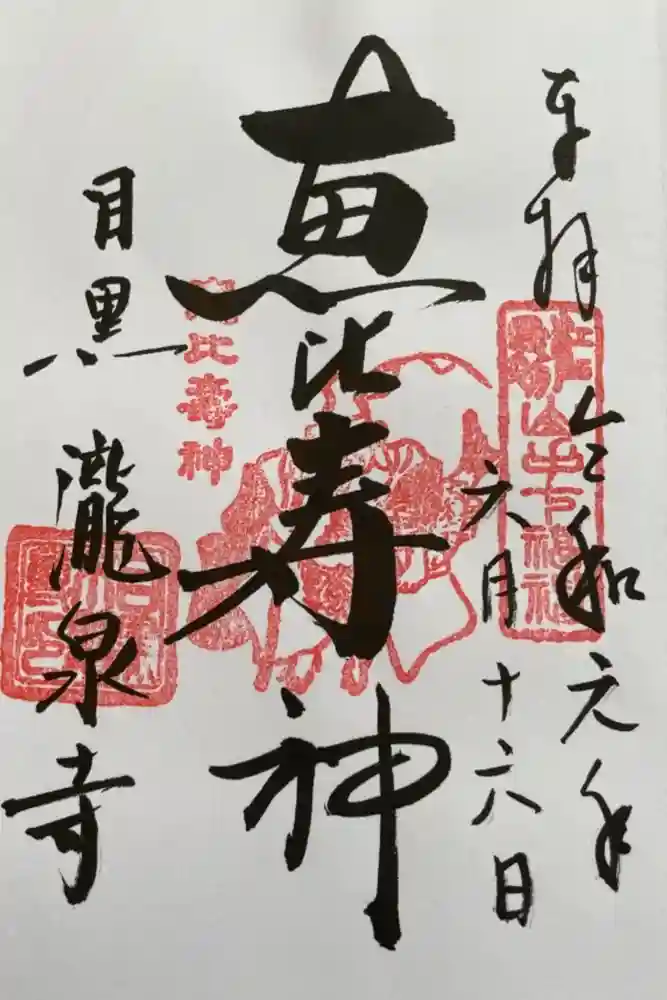 奉拝
令和元年
六月十六日
恵比寿神
恵比寿神
目黒 瀧泉寺